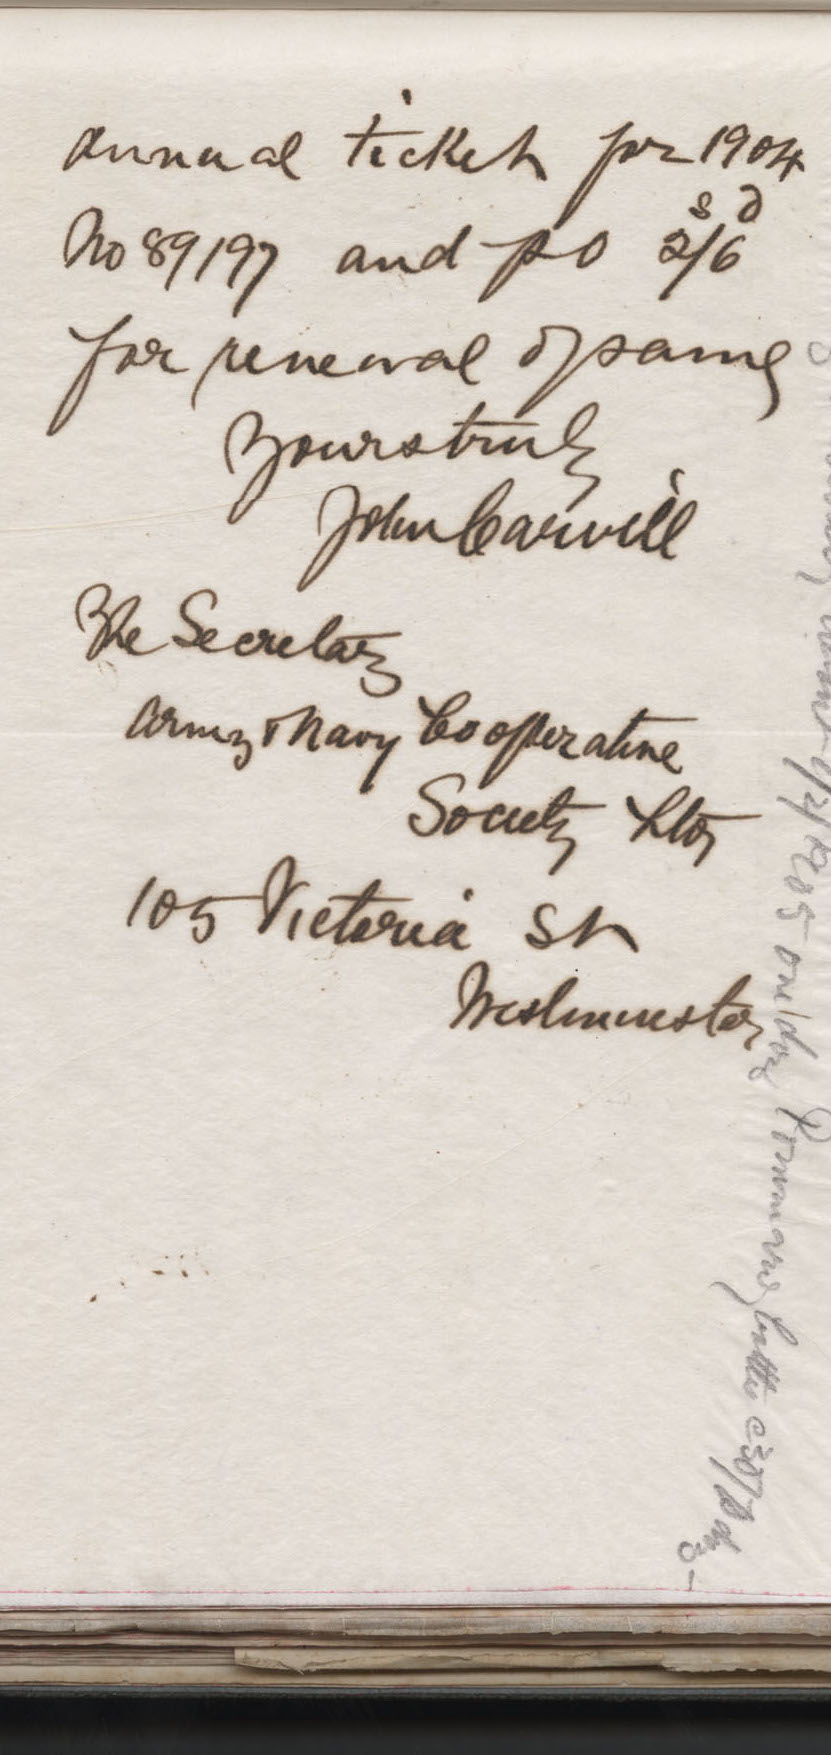 annual ticket for 1904
s d
No 89197 and po 2/6
for renewal of same
Yours truly
John Carvill
The Secretary
Army & Navy Cooperative
Society Ltd
105 Victoria St
Westminster